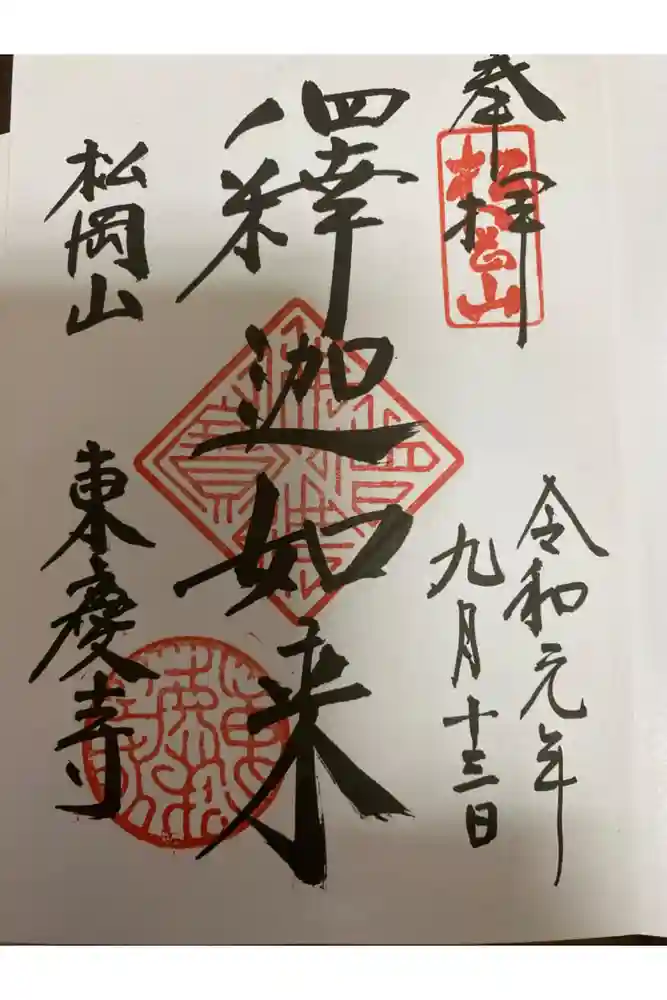 奉拝
松岡山
令和元年
九月十三日
釋迦如来
松岡山
東慶寺